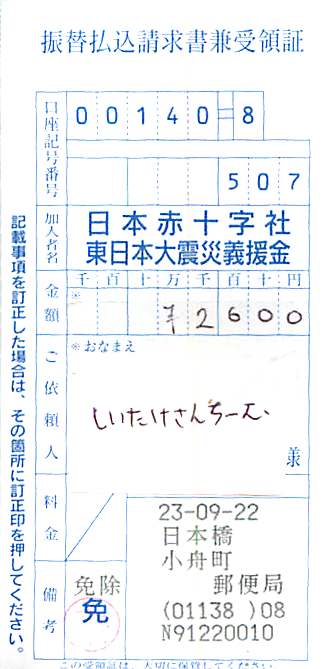 振替払込請求書兼受領証
口座記号番号
00140=8
507
加入者名
日本赤十字社
東日本大震災義援金
金額
千百十万千百十円
※
¥2600
ご依頼人
※おなまえ
しいたけさんちーむ
様
料金
備考
免除
免
23-09-22
日本橋
小舟町
郵便局
(01138 )08
N91220010
記載事項を訂正した場合は、その箇所に訂正印を押してください。
この受領証は、大切に保管してください